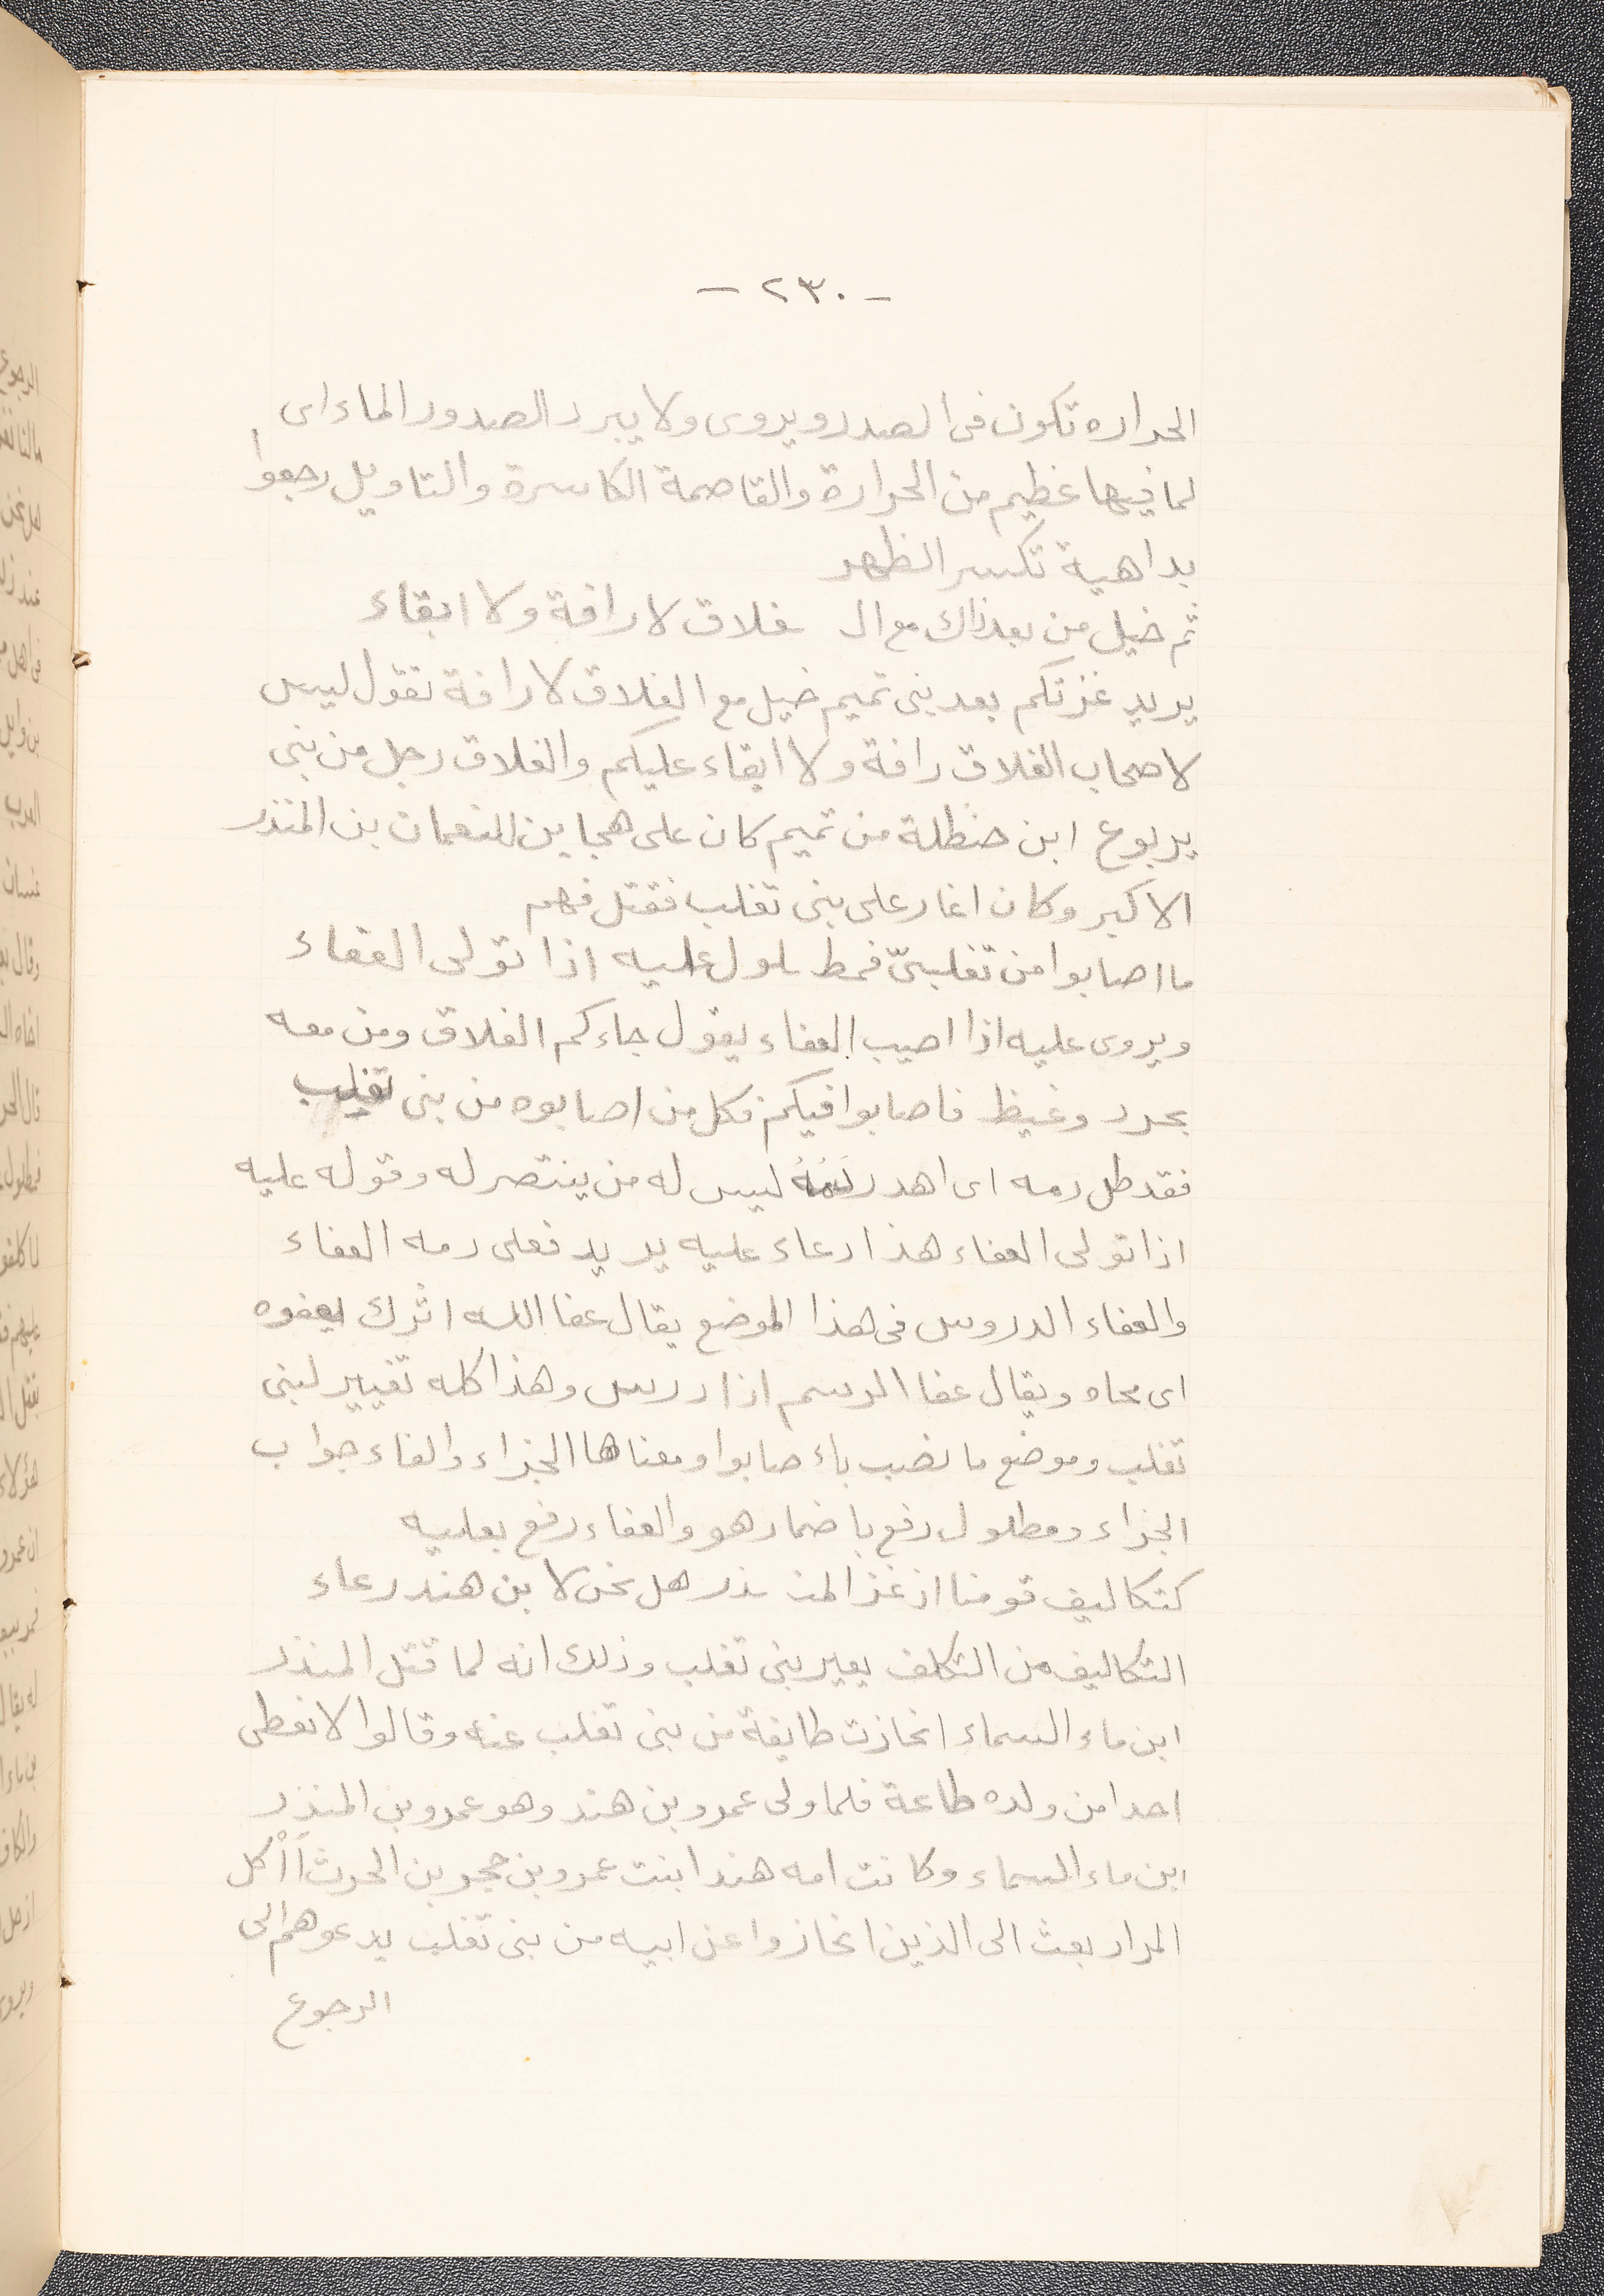 - ٢٣٠ -
الحراره تكون فى الصدر ويروى ولا يبرد الصدور الماء اى
لما فيها غظيم من الحرارة والقاصمة الكاسرة والتاويل رجعوا
بداهية تكسر الظهر
ثم خيل من بعد ذاك مع الـ غلاق لا رافة ولا ابقاء
يريد غزتكم بعد بنى تميم خيل مع الغلاق لا رافة تقول ليس
لاصحاب الغلاق رافة ولا ابقاء عليكم والغلاق رجل من بنى
يربوع ابن حنظلة من تميم كان على هجاين النعمان بن المنذر
الاكبر وكان اغار على بنى تغلب فقتل فيهم
ما اصابوا من تغلبىّ فمطـ ـلول عليه اذا تولى العفاء
ويروى عليه اذا اصيب العفاء يقول جاءكم الغلاق ومن معه
بحرد وغيظ فاصابوا فيكم فكل من اصابوه من بنى تغلب
فقد طل دمه اى اهدر ليس له من ينتصر له وقوله عليه
اذا تولى العفاء هذا دعاء عليه يريد فعلى دمه العفاء
والعفاء الدروس فى هذا الموضع يقال عفا الله اثرك يعفوه
اى محاه ويقال عفا الرسم اذا درس وهذا كله تغيير لبنى
تغلب وموضع ما نصب باء صابوا ومعناها الجزاء والفاء جواب
الجزاء ومطلول رفع باضمار هو والعفاء رفع بعليه
كتكاليف قومنا اذ غزا المنـ ـذر هل نحن لا بن هند رعاء
التكاليف من التكلف يعير بنى تغلب وذلك انه لما قتل المنذر
ابن ماء السماء انحازت طايفة من بنى تغلب عنه وقالوا لا نعطى
احدا من ولده طاعة فلما ولى عمرو بن هند وهو عمرو بن المنذر
ابن ماء السماء وكانت امه هند ابنت عمرو بن حجر بن الحرث اَاْكل
المرار بعث الى الذين انحازوا عن ابيه من بنى تغلب يدعوهم الى
الرجوع